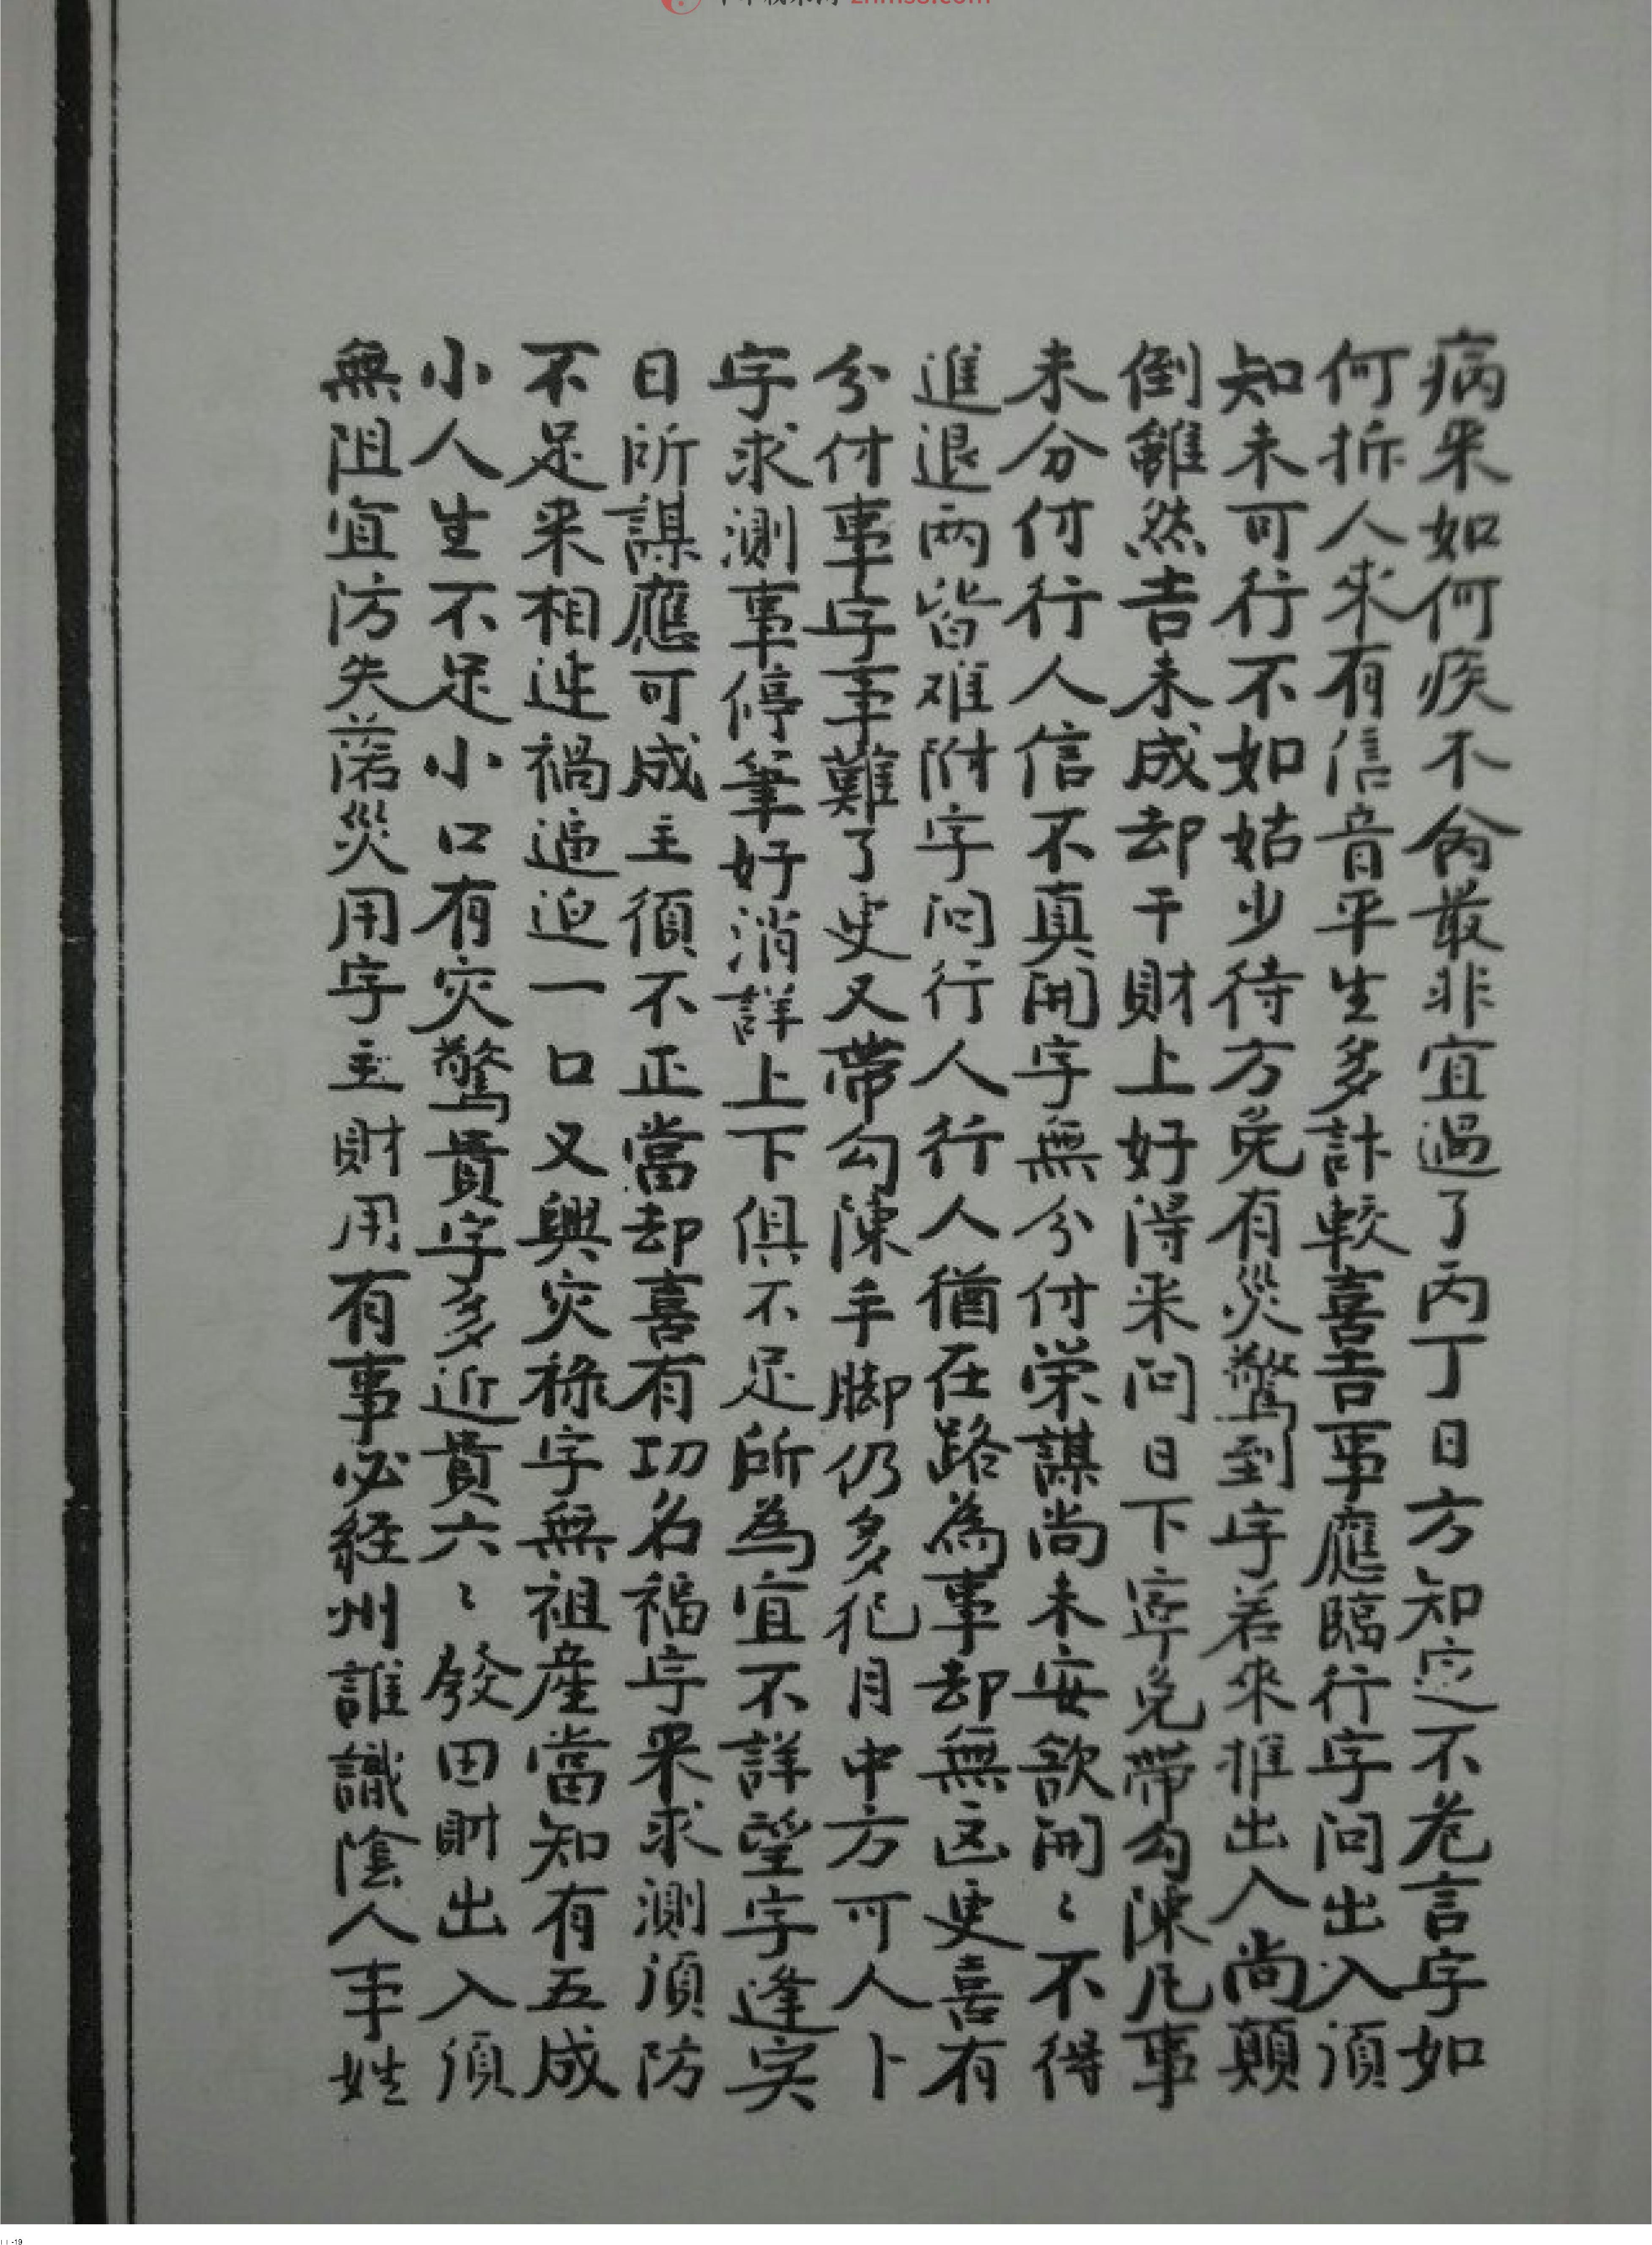 病来如何疾不禽最非宜過了丙丁日方知定不危言字如
何拆人来有信音平生多計較喜吉事應臨行字问出入須
知未可行不如姑少待方免有災驚到字若來推出入尚顛
倒雖然吉未成却干財上好得来问日下寧免帶勾陳凡事
未分付行人信不真開字無分付荣謀尚未安欲開〻不得
進退两皆难附字问行人行人猶在路為事却無凶更喜有
分付事字事難了更又帶勾陳手脚仍多犯月中方可人卜
字求測事停筆好消詳上下俱不足所為宜不詳望字逢寅
日所謀應可成主須不正當却喜有功名福字来求測須防
不足来相迯禍逼迫一口又興灾祿字無祖産當知有五成
小人生不足小口有灾驚貴字多近貴六〻發田財出入須
無阻宜防失落災用字主財用有事必経州誰識陰人事姓
zhms8.com